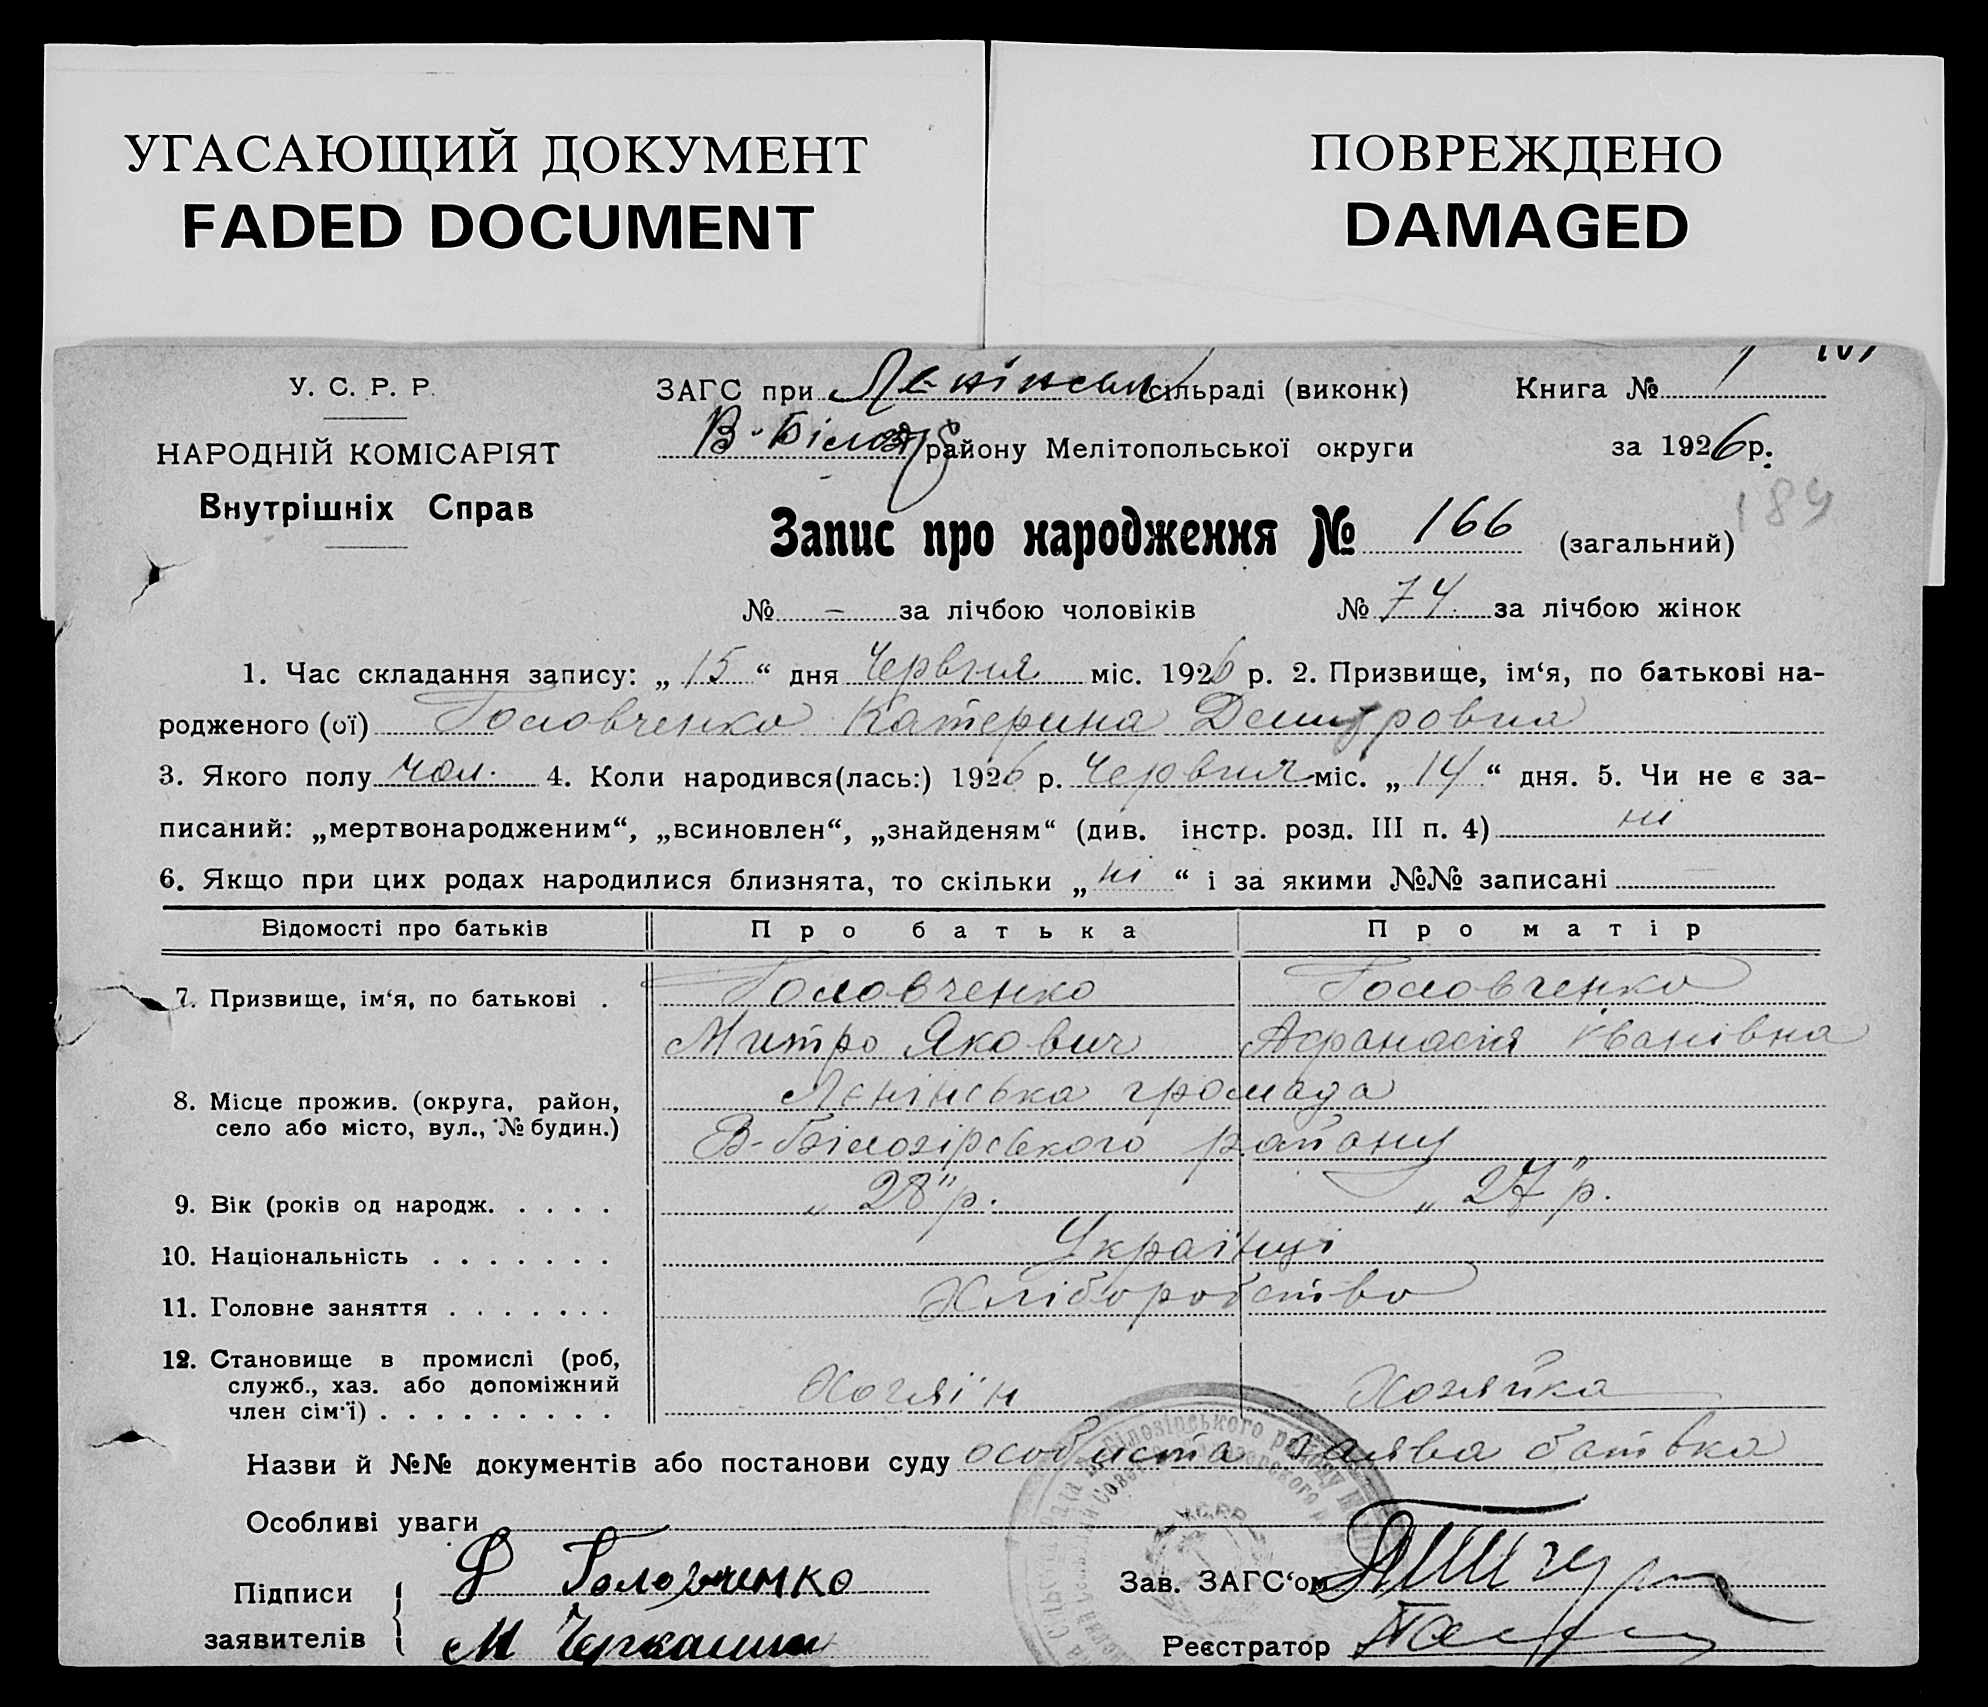 УГАСАЮЩИЙ ДОКУМЕНТ
FADED DOCUMENT
ПОВРЕЖДЕНО
DAMAGED
У. С. Р. Р.
НАРОДНІЙ КОМІСАРІЯТ
Внутрішніх Справ
ЗАГС при Ленінськ сільраді (виконк)
Книга № 1
В-Білозір району Мелітопольської округи
за 1926 р.
184
Запис про народження № 166 (загальний)
№ – за лічбою чоловіків № 74 за лічбою жінок
1. Час складання запису: „15“ дня Червня міс. 1926 р. 2. Призвище, ім‘я, по батькові на-
родженого (ої) Головченко Катерина Демитровна
3. Якого полу чол. 4. Коли народився(лась:) 1926 р. Червня міс. „14“ дня. 5. Чи не є за-
писаний: „мертвонародженим“, „всиновлен“, „знайденям“ (див. інстр. розд. III п. 4) ні
6. Якщо при цих родах народилися близнята, то скільки „ні“ і за якими №№ записані –
Відомості про батьків Про батька Про матір
7. Призвище, ім‘я, по батькові . Головченко Головченко
Митро Якович Афанасія Іванівна
8. Місце прожив. (округа, район, Ленінська громада
село або місто, вул., № будин.) В-Білозірського району
9. Вік (років од народж. . . . . „28“ р. „27“ р.
10. Національність . . . . . . . Українці
11. Головне заняття . . . . . . . Хліборобство
12. Становище в промислі (роб,
служб., хаз. або допоміжний
член сім‘ї) . . . . . . . . . Хозяїн Хозяйка
Назви й №№ документів або постанови суду особиста заява батька
Особливі уваги
Підписи
заявителів
Головченко
М
Зав. ЗАГС‘ом
Реєстратор